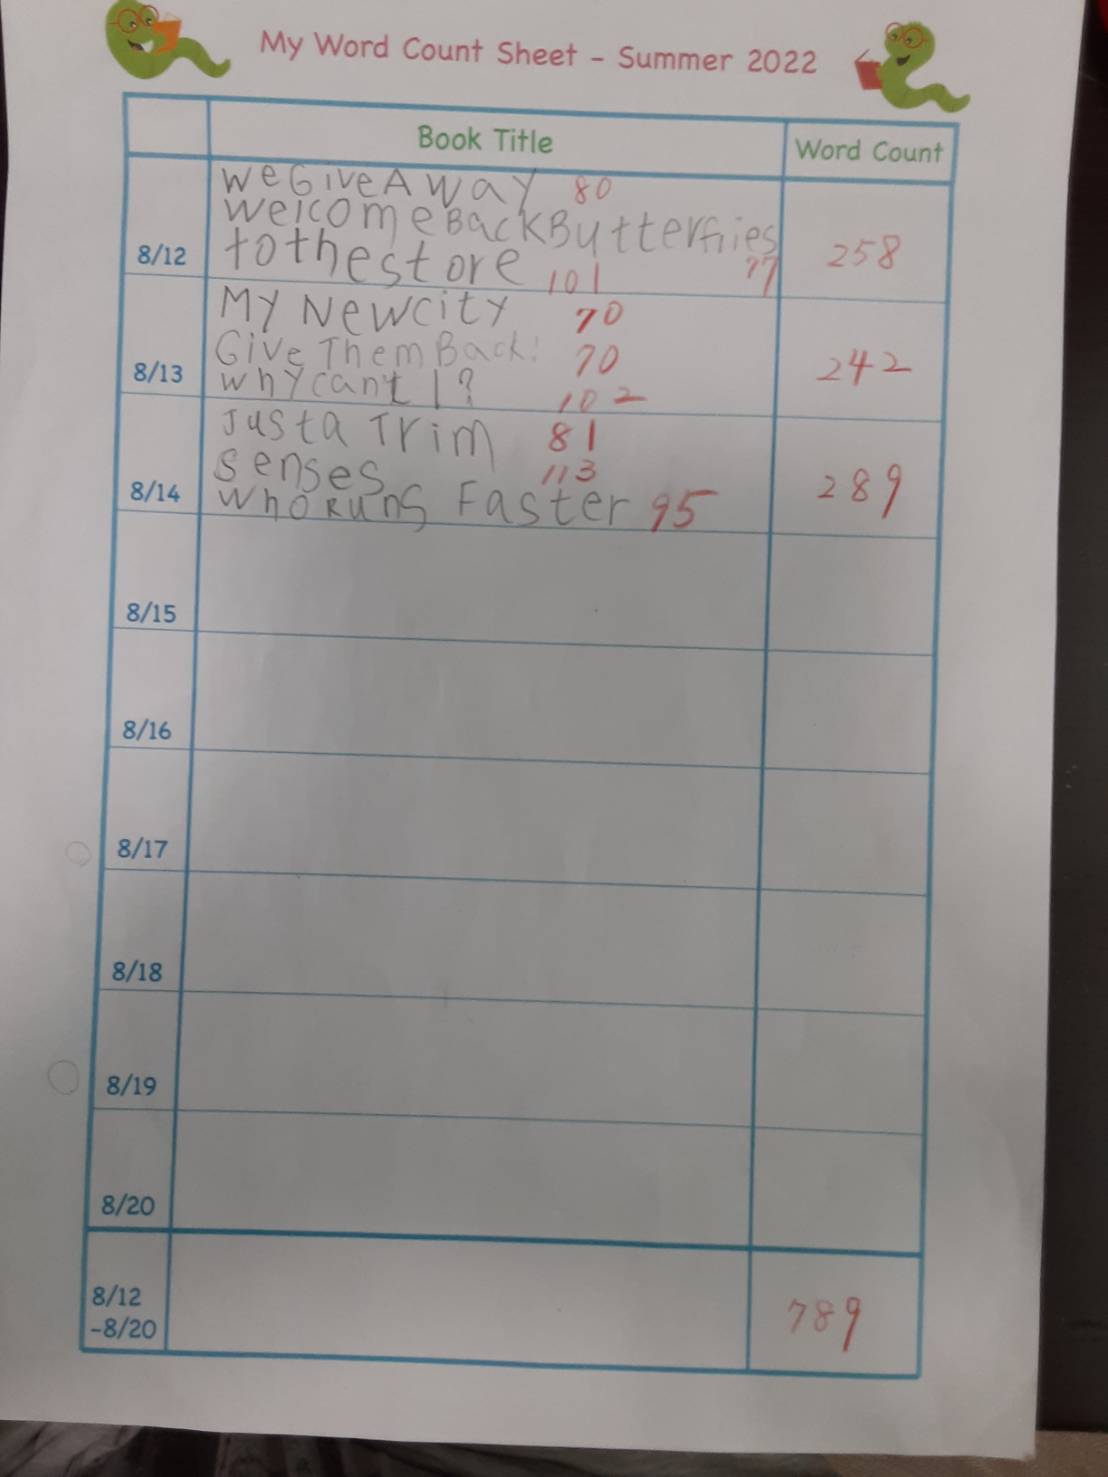 My Word Count Sheet - Summer 2022
Book Title
Word Count
We Give A Way 80
welcome Back Butterflies
8/12
to the store 101
77
258
My New city 70
Give Them Back! 70
8/13
why can't I? 102
242
Just a Trim 81
senses 113
8/14
who Runs Faster 95
289
8/15
8/16
8/17
8/18
8/19
8/20
8/12
-8/20
789